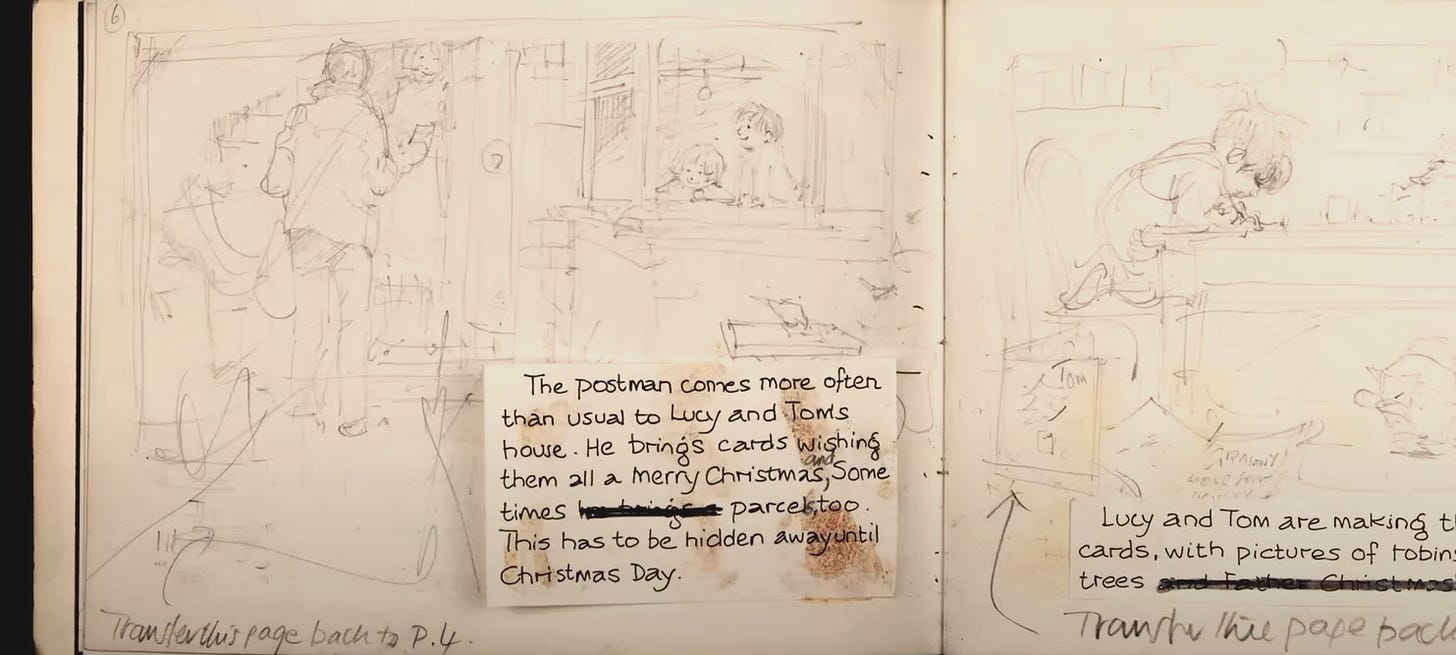 6
7
The postman comes more often
than usual to Lucy and Tom's
house. He brings cards wishing
and
them all a Merry Christmas, Some
times he brings a parcel, too.
This has to be hidden away until
Christmas Day.
Transfer this page back to P.4.
Tom
GRANNY
Lucy and Tom are making
cards, with pictures of robins
trees and Father Christmas
Transfer this page back